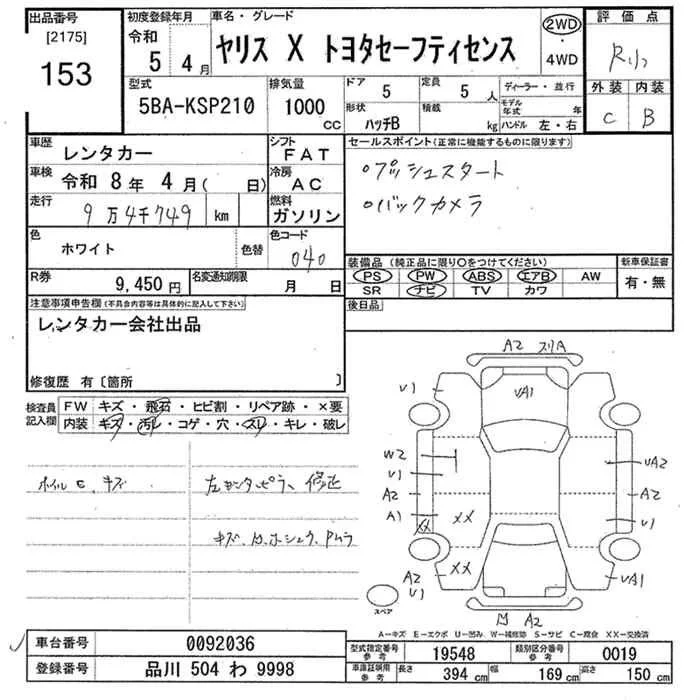 出品番号
[2175]
153
初度登録年月
令和
5 4月
車名・グレード
ヤリス X トヨタセーフティセンス
2WD
・
4WD
評価点
外装 内装
C B
型式
5BA-KSP210
排気量
1000
CC
ドア
5
定員
5人
形状
ハッチB
積載
kg
ディーラー・並行
モデル年式 年
ハンドル 左・右
車歴
レンタカー
シフト
FAT
車検
令和 8年 4月( 日)
冷房
AC
走行
9万4千749 km
燃料
ガソリン
色
ホワイト
色替
色コード
040
R券
9,450円
名変通知期限
月 日
セールスポイント(正常に機能するものに限ります)
○プッシュスタート
○バックカメラ
装備品(純正品に限り○をつけてください)
PS PW ABS エアB AW
SR ナビ TV カワ
新車保証書
有・無
後日品
注意事項申告欄(不具合内容等は具体的に記入して下さい)
レンタカー会社出品
修復歴 有〔箇所 〕
検査員
記入欄
FW キズ・飛石・ヒビ割・リペア跡・×要
内装 キズ・汚レ・コゲ・穴・スレ・キレ・破レ
ホイルE、キズ
左センタピラ、修正
A2 スリA
V1
UA1
W2
V1
A2
A1
XX
XX
XX
UA2
A2
V1
UA1
A2
V1
A2
スペア
A−キズ E−エクボ U−凹み W−補修跡 S−サビ C−腐食 XX−交換済
車台番号
0092036
登録番号
品川 504 わ 9998
型式指定番号
参考
19548
類別区分番号
参考
0019
車庫証明用
参考
長さ
394 cm
幅
169 cm
高さ
150 cm